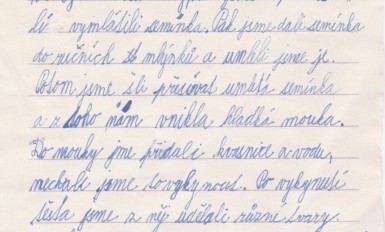 li vymlátili semínka. Pak jsme dali semínka
do ručních mlýnků a umleli jsme je.
Potom jsme šli přesívat umletá semínka
a z toho nám vnikla hladká mouka.
Do mouky jme přidali kvasnice a vodu,
nechali jsme to vykynout. Po vykynutí
těsta jsme z něj udělali různé tvary.